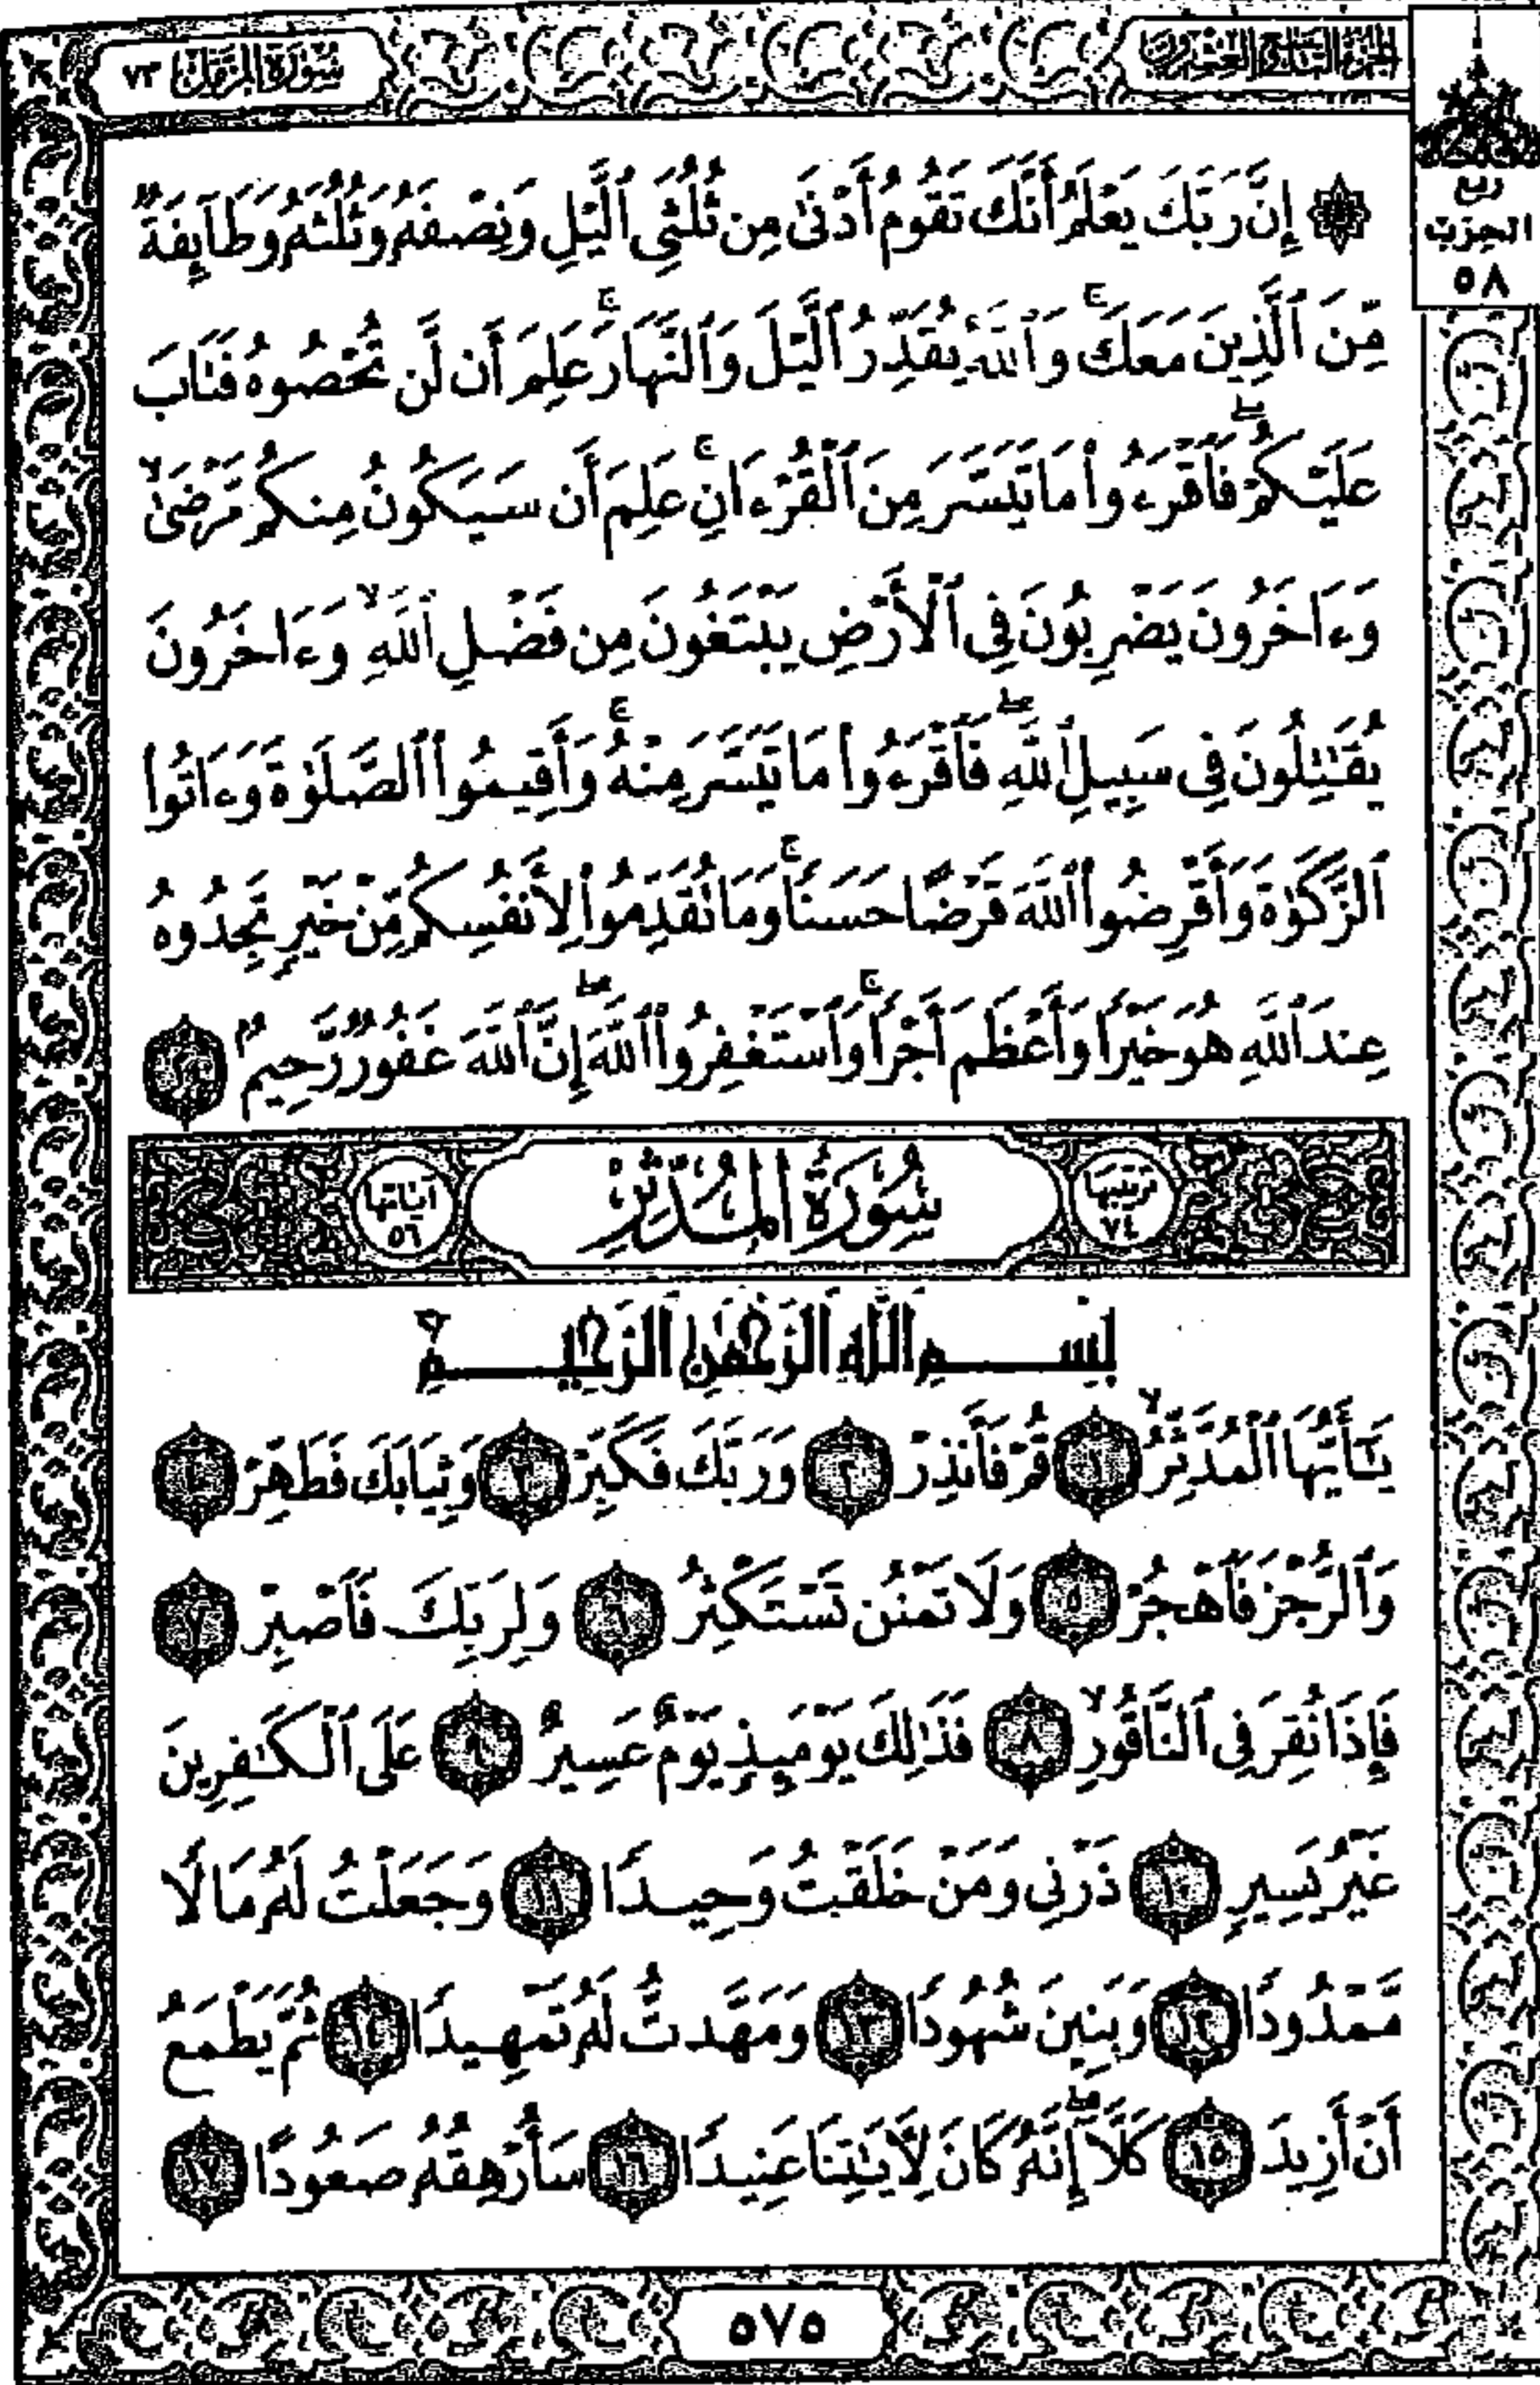 الجزء التاسع والعشرون
سورة المزمل ٧٣
ربع
الحزب
٥٨
۞ إِنَّ رَبَّكَ يَعْلَمُ أَنَّكَ تَقُومُ أَدْنَىٰ مِن ثُلُثَيِ ٱلَّيْلِ وَنِصْفَهُۥ وَثُلُثَهُۥ وَطَآئِفَةٌ
مِّنَ ٱلَّذِينَ مَعَكَ ۚ وَٱللَّهُ يُقَدِّرُ ٱلَّيْلَ وَٱلنَّهَارَ ۚ عَلِمَ أَن لَّن تُحْصُوهُ فَتَابَ
عَلَيْكُمْ ۖ فَٱقْرَءُوا۟ مَا تَيَسَّرَ مِنَ ٱلْقُرْءَانِ ۚ عَلِمَ أَن سَيَكُونُ مِنكُم مَّرْضَىٰ ۙ
وَءَاخَرُونَ يَضْرِبُونَ فِى ٱلْأَرْضِ يَبْتَغُونَ مِن فَضْلِ ٱللَّهِ ۙ وَءَاخَرُونَ
يُقَـٰتِلُونَ فِى سَبِيلِ ٱللَّهِ ۖ فَٱقْرَءُوا۟ مَا تَيَسَّرَ مِنْهُ ۚ وَأَقِيمُوا۟ ٱلصَّلَوٰةَ وَءَاتُوا۟
ٱلزَّكَوٰةَ وَأَقْرِضُوا۟ ٱللَّهَ قَرْضًا حَسَنًا ۚ وَمَا تُقَدِّمُوا۟ لِأَنفُسِكُم مِّنْ خَيْرٍ تَجِدُوهُ
عِندَ ٱللَّهِ هُوَ خَيْرًا وَأَعْظَمَ أَجْرًا ۚ وَٱسْتَغْفِرُوا۟ ٱللَّهَ ۖ إِنَّ ٱللَّهَ غَفُورٌ رَّحِيمٌۢ ٢٠
ترتيبها ٧٤ سُورَةُ المُدَّثِّرِ آياتها ٥٦
بِسْمِ ٱللَّهِ ٱلرَّحْمَـٰنِ ٱلرَّحِيمِ
يَـٰٓأَيُّهَا ٱلْمُدَّثِّرُ ۙ ١ قُمْ فَأَنذِرْ ٢ وَرَبَّكَ فَكَبِّرْ ٣ وَثِيَابَكَ فَطَهِّرْ ٤
وَٱلرُّجْزَ فَٱهْجُرْ ٥ وَلَا تَمْنُن تَسْتَكْثِرُ ٦ وَلِرَبِّكَ فَٱصْبِرْ ٧
فَإِذَا نُقِرَ فِى ٱلنَّاقُورِ ۙ ٨ فَذَٰلِكَ يَوْمَئِذٍ يَوْمٌ عَسِيرٌ ٩ عَلَى ٱلْكَـٰفِرِينَ
غَيْرُ يَسِيرٍ ١٠ ذَرْنِى وَمَنْ خَلَقْتُ وَحِيدًا ١١ وَجَعَلْتُ لَهُۥ مَالًا
مَّمْدُودًا ١٢ وَبَنِينَ شُهُودًا ١٣ وَمَهَّدتُّ لَهُۥ تَمْهِيدًا ١٤ ثُمَّ يَطْمَعُ
أَنْ أَزِيدَ ١٥ كَلَّآ ۖ إِنَّهُۥ كَانَ لِـَٔايَـٰتِنَا عَنِيدًا ١٦ سَأُرْهِقُهُۥ صَعُودًا ١٧
٥٧٥